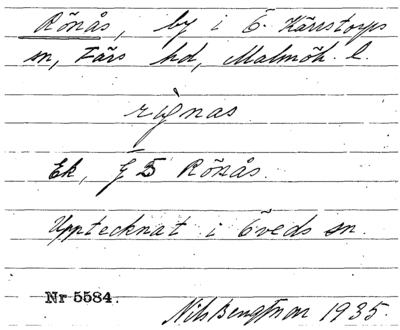 Rönås, by i Ö. Kärrstorps
sn, Färs hd, Malmöh. l.
rìgnas
Ek, f 5 Rönås.
Upptecknat i Öveds sn.
Nr 5584.
Nils Bengtson 1935.